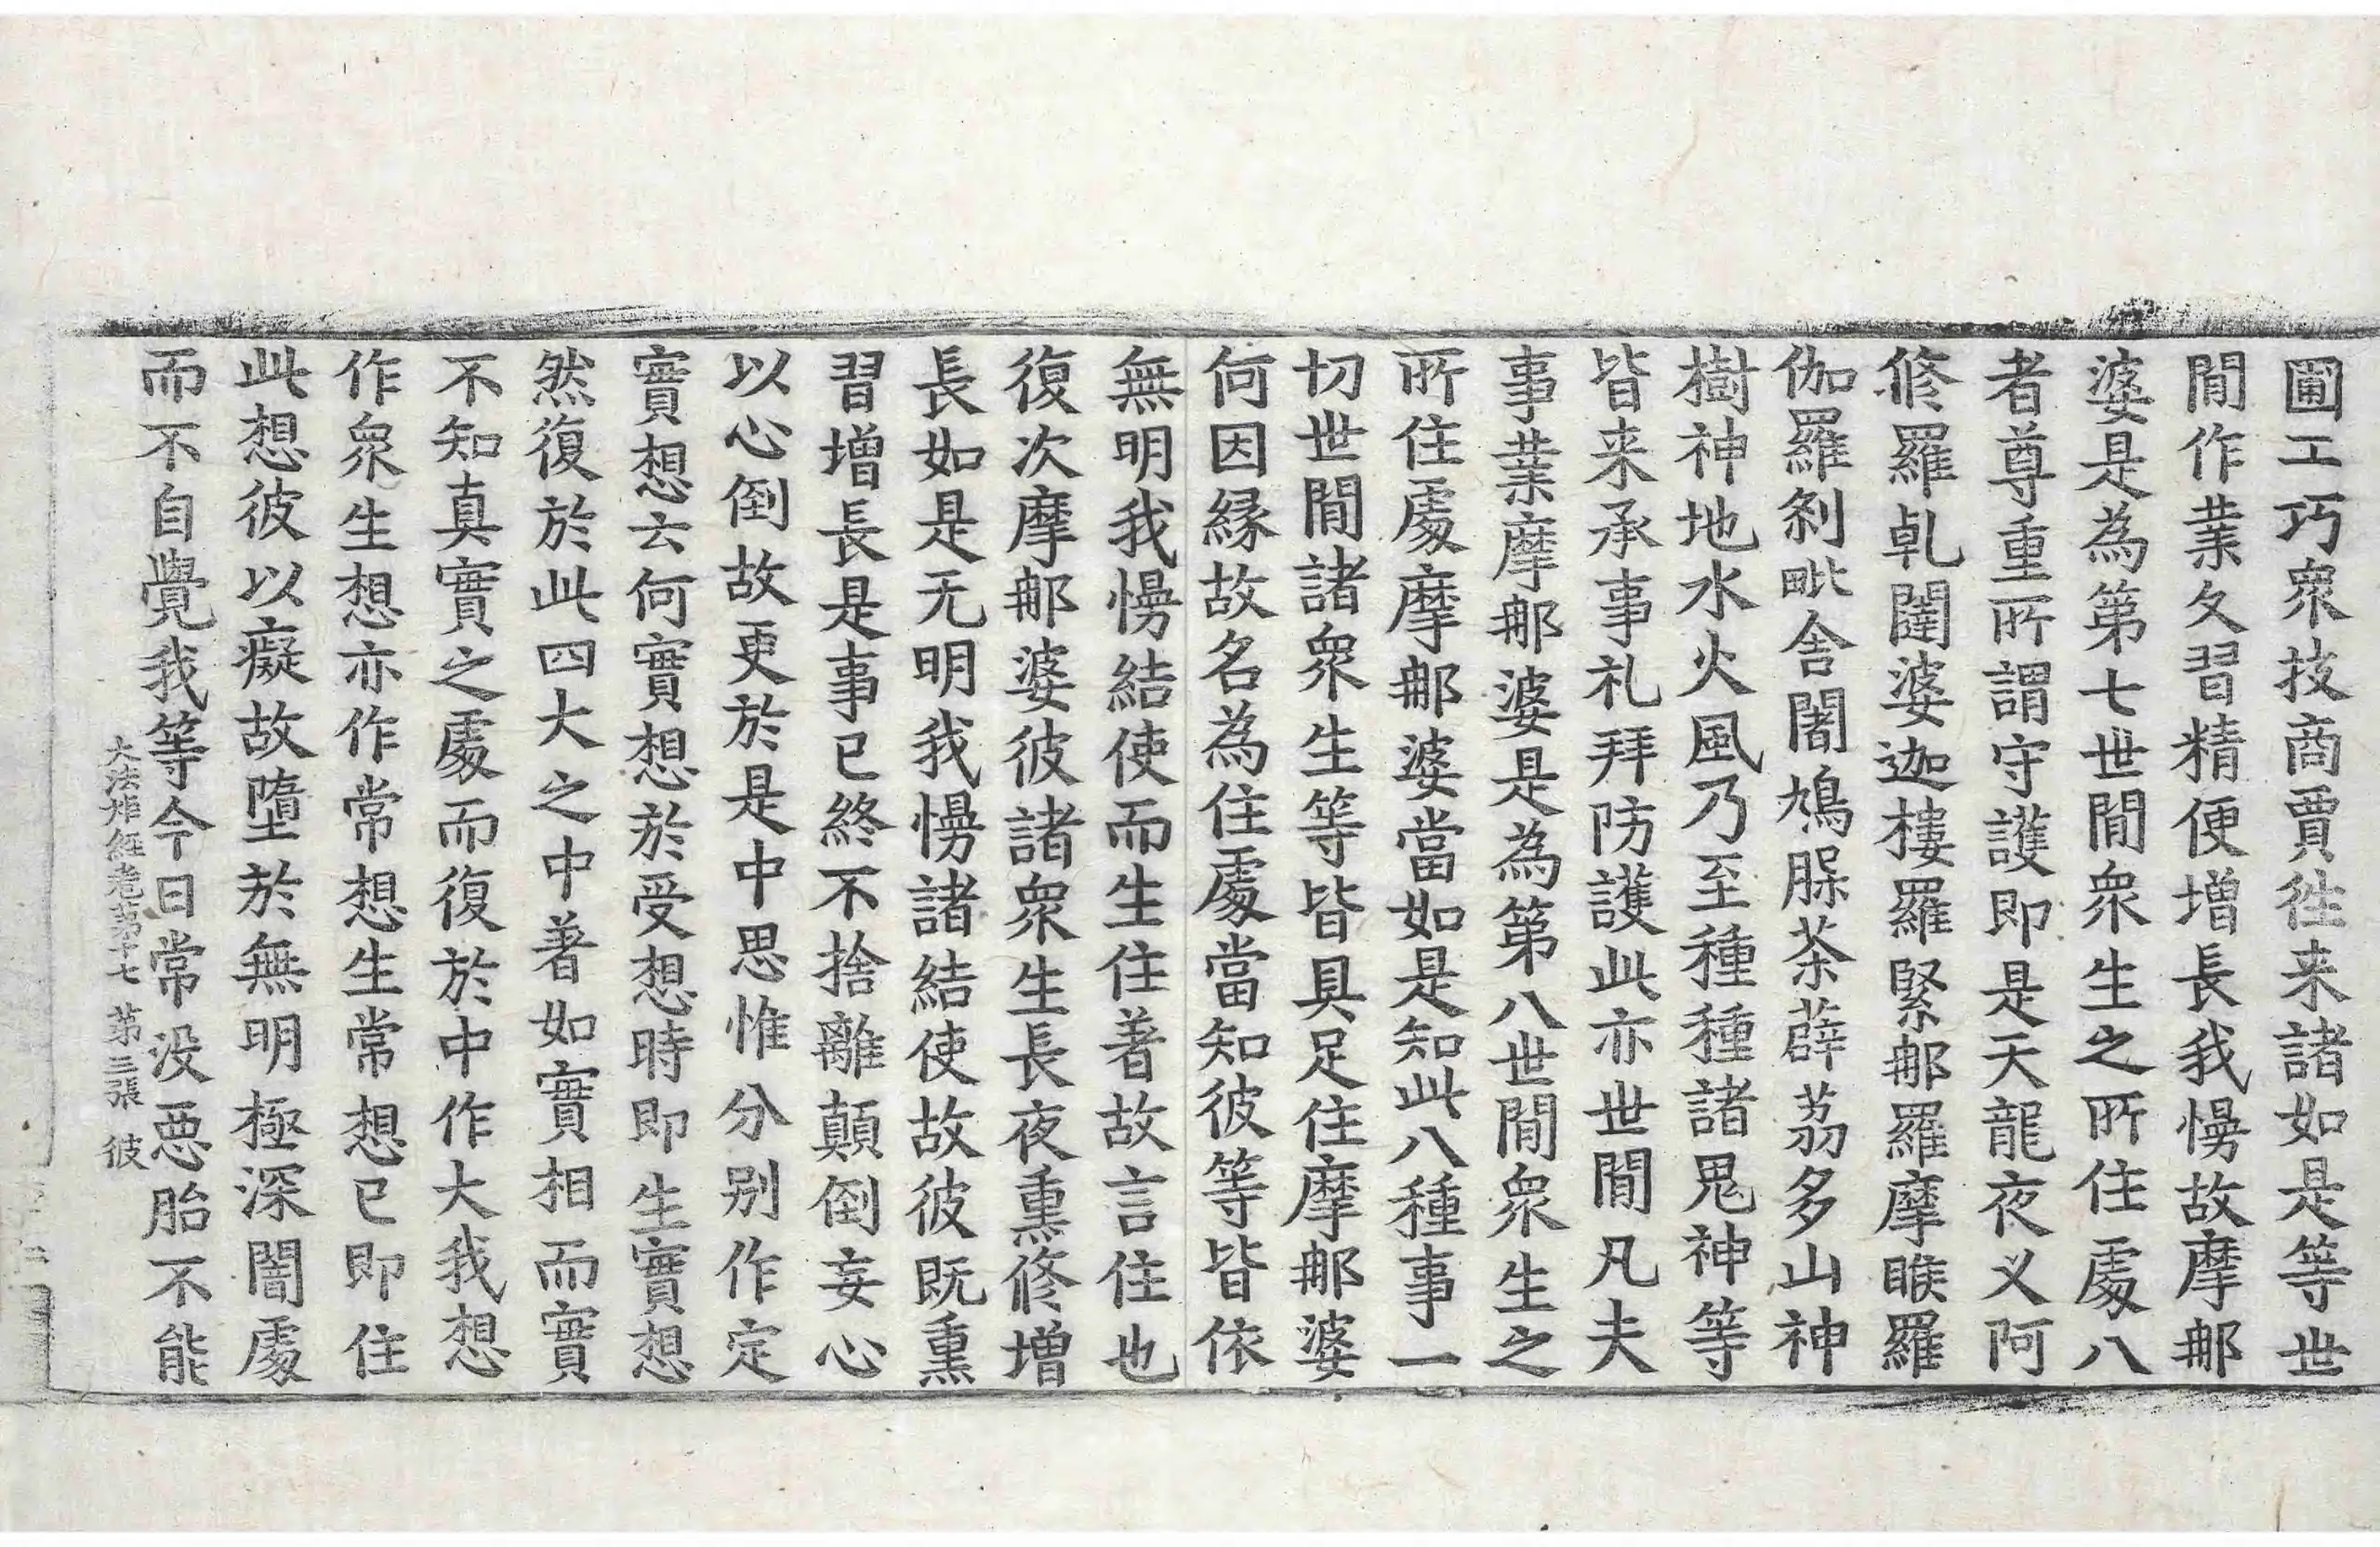 圃工巧衆技商賈徃来諸如是等世
間作業久習精便增長我慢故摩那
婆是為第七世間衆生之所住處八
者尊重所謂守護即是天龍夜义阿
修羅乹闥婆迦樓羅緊那羅摩睺羅
伽羅剎毗舍闍鳩脲茶薜荔多山神
樹神地水火風乃至種種諸鬼神等
皆来承事礼拜防護此亦世間凡夫
事業摩那婆是為第八世間衆生之
所住處摩那婆當如是知此八種事一
切世間諸衆生等皆具足住摩那婆
何因緣故名為住處當知彼等皆依
無明我慢結使而生住著故言住也
復次摩那婆彼諸衆生長夜熏修增
長如是无明我慢諸結使故彼既熏
習增長是事已終不捨離顛倒妄心
以心倒故更於是中思惟分別作定
實想云何實想於受想時即生實想
然復於此四大之中著如實相而實
不知真實之處而復於中作大我想
作衆生想亦作常想生常想已即住
此想彼以癡故墮於無明極深闇處
而不自覺我等今日常没惡胎不能
大法炬經卷苐十七 苐三張 彼